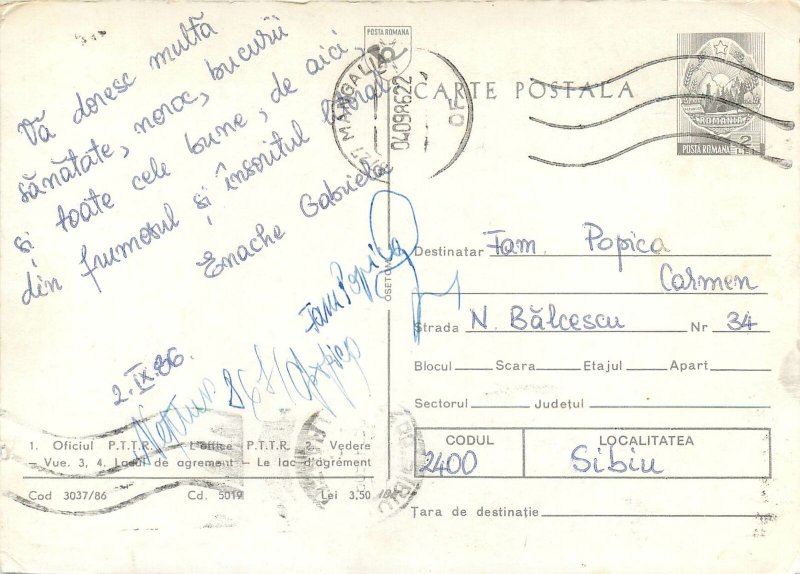 Vă doresc multă
sănătate, noroc, bucurii
și toate cele bune, de aici,
din frumosul și însoritul litoral,
Enache Gabriela
2.IX.86.
Fam Popica
1. Oficiul P.T.T.R. — L'office P.T.T.R. 2. Vedere
Vue. 3, 4. Lacul de agrement — Le lac d'agrément
Cod 3037/86 Cd. 5019 Lei 3,50
POSTA ROMANA
MANGALIA
04098622
OSETOM
CARTE POSTALA
ROMANIA
POSTA ROMANA 2 LEI
Destinatar Fam. Popica
Carmen
Strada N. Bălcescu Nr 34
Blocul Scara Etajul Apart
Sectorul Județul
CODUL LOCALITATEA
2400 Sibiu
Țara de destinație